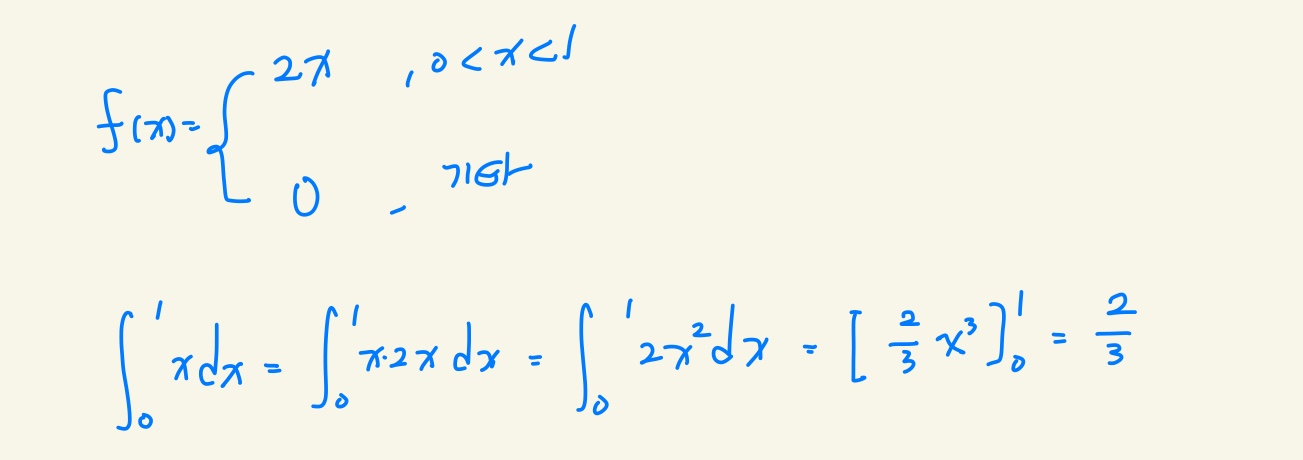 f(x)= { 2x , 0<x<1
0 , 기타
∫₀¹ x dx = ∫₀¹ x·2x dx = ∫₀¹ 2x² dx = [ 2/3 x³ ]₀¹ = 2/3